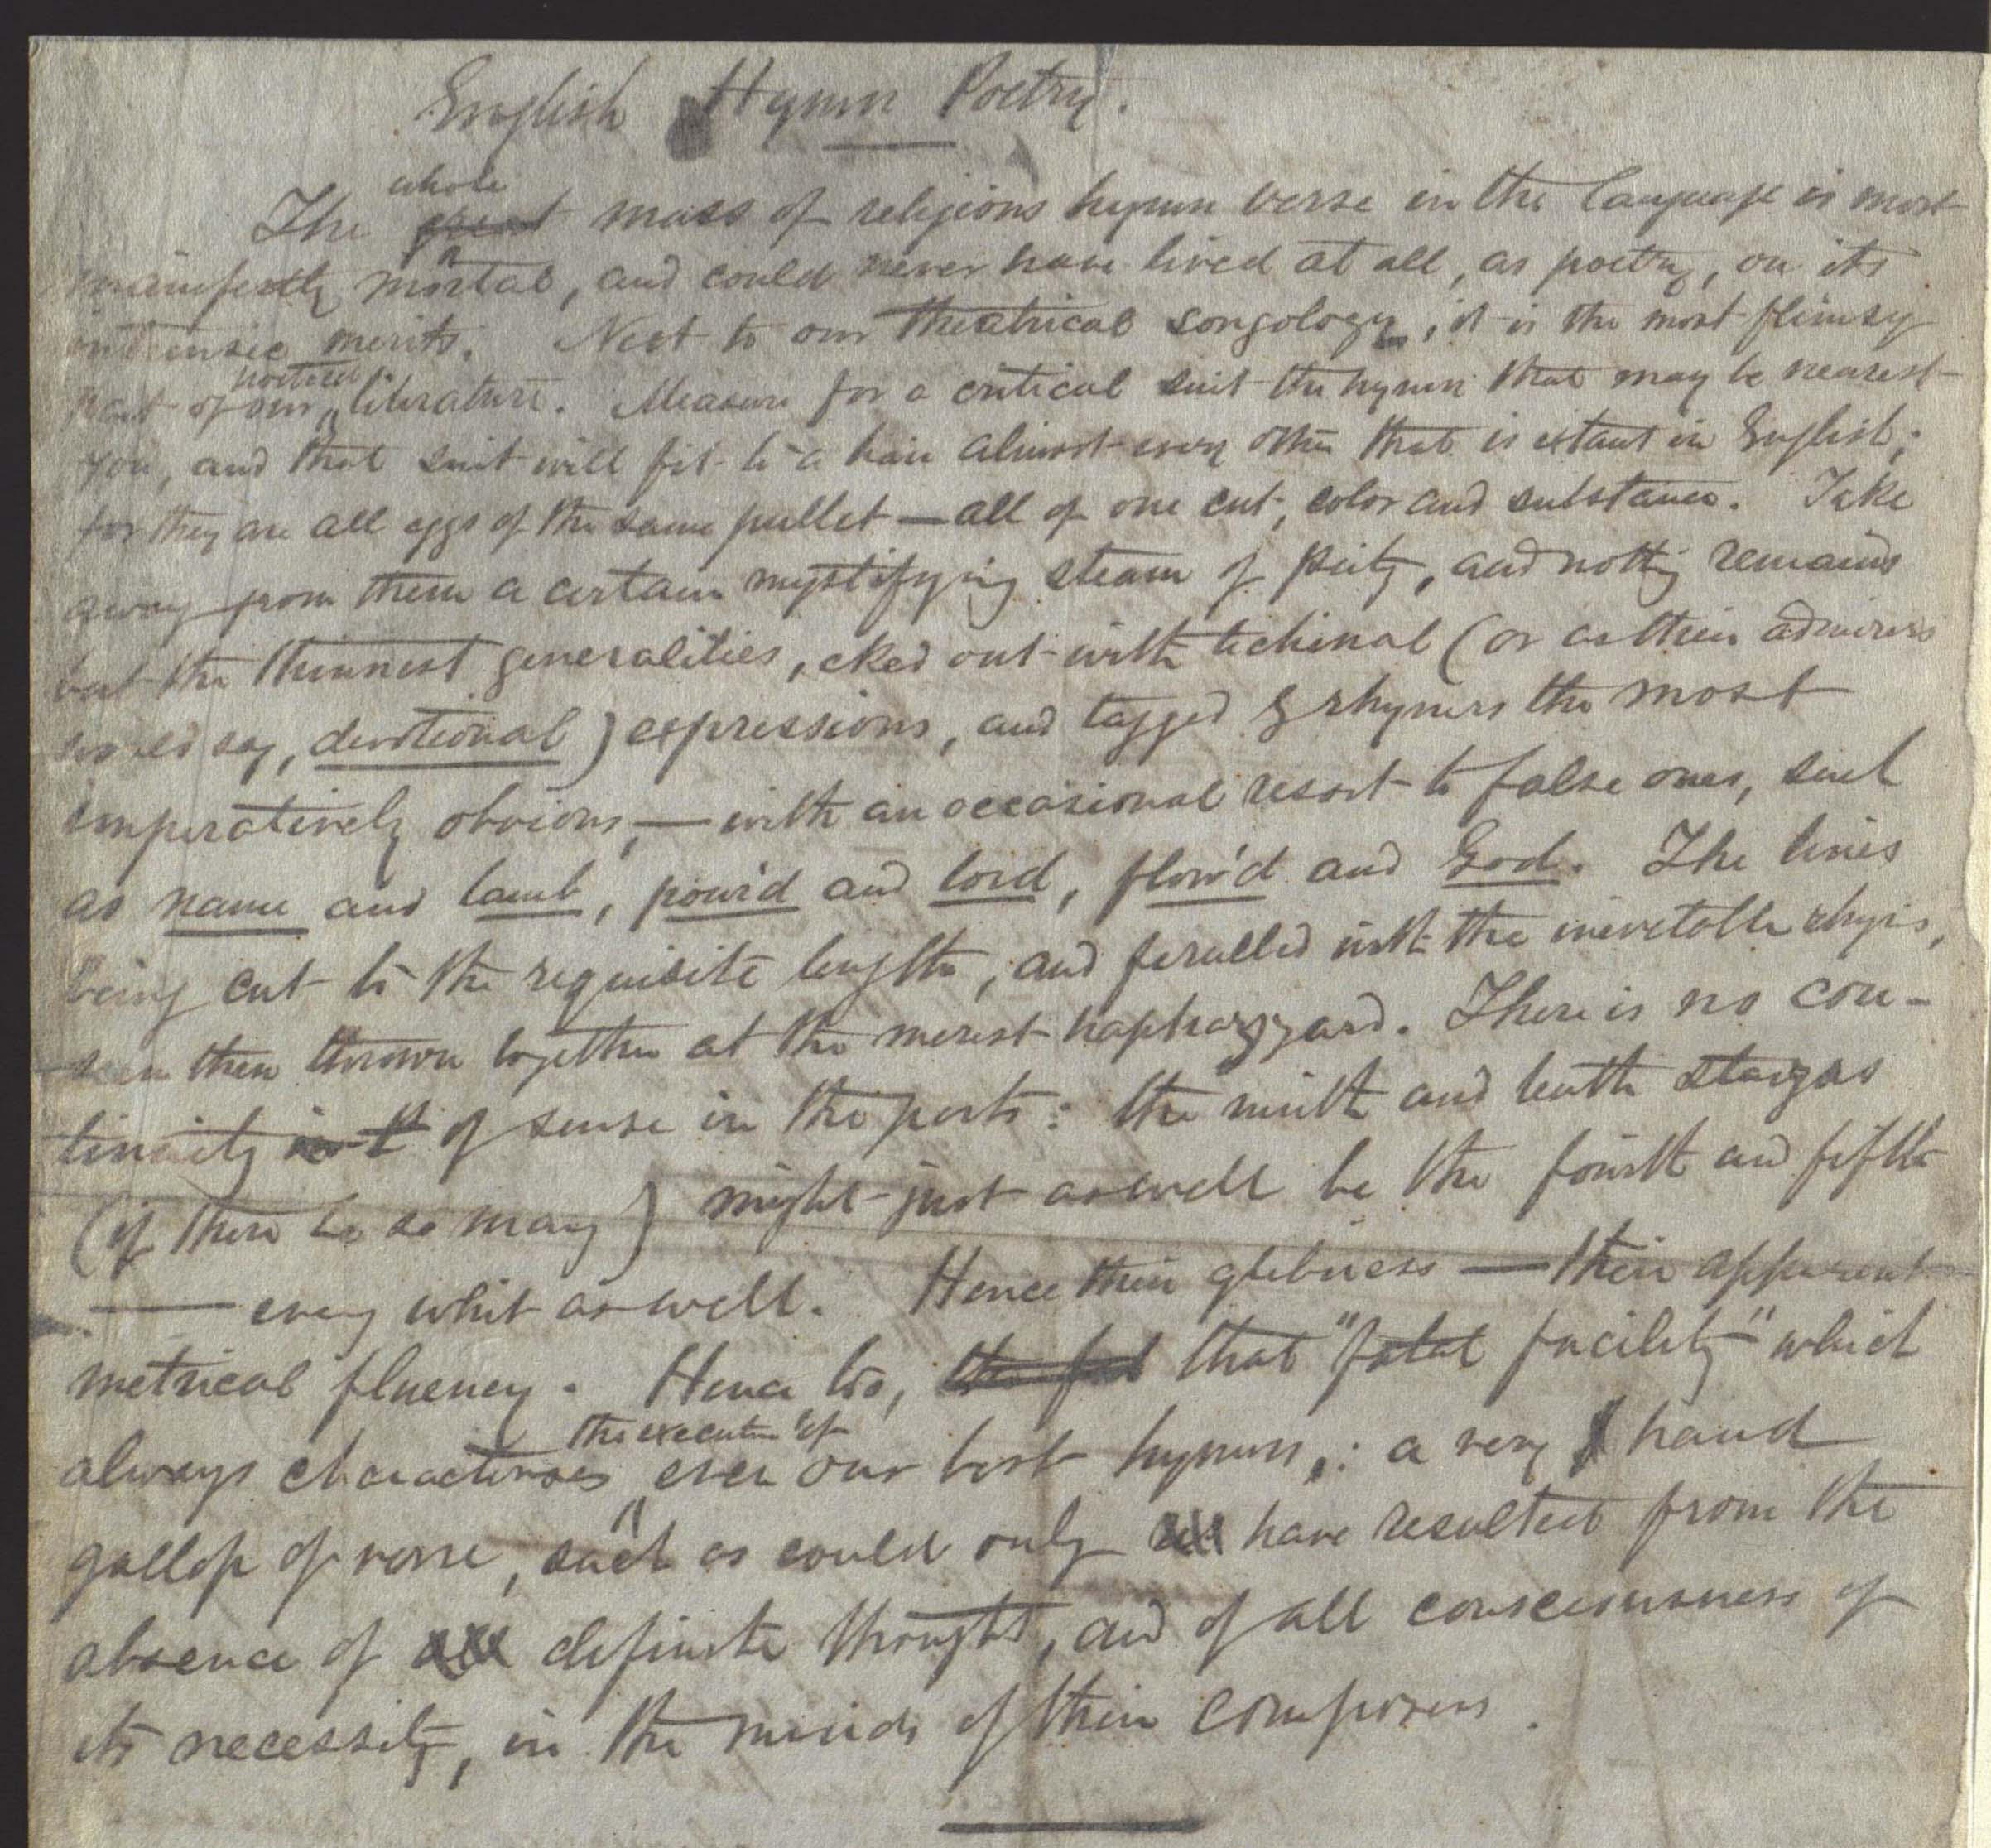 English Hymn Poetry.
whole
The great mass of religious hymn verse in the language is most
manifestly mortal, and could never have lived at all, as poetry, on its
intrinsic merits. Next to our theatrical songology, it is the most flimsy
poetical
part of our literature. Measure for a critical suit the hymn that may be nearest
you, and that suit will fit to a hair almost every other that is extant in English;
for they are all eggs of the same pullet — all of one cut, color and substance. Take
away from them a certain mystifying steam of piety, and nothing remains
but the thinnest generalities, eked out with technical (or as their admirers
would say, devotional) expressions, and tagged by rhymes the most
imperatively obvious, — with an occasional resort to false ones, such
as name and lamb, pour'd and lord, flow'd and God. The lines
being cut to the requisite length, and ferulled with the inevitable
then thrown together at the merest haphazzard. There is no con-
tinuity of sense in the parts: the ninth and tenth stanzas
(if there be so many) might just as well be the fourth and fifth
— every whit as well. Hence their glibness — their apparent
metrical fluency. Hence too, that "fatal facility" which
the execution of
always characterises even our best hymns: a very hand
gallop of verse, such as could only have resulted from the
absence of all definite thought, and of all consciousness of
its necessity, in the minds of their composers.